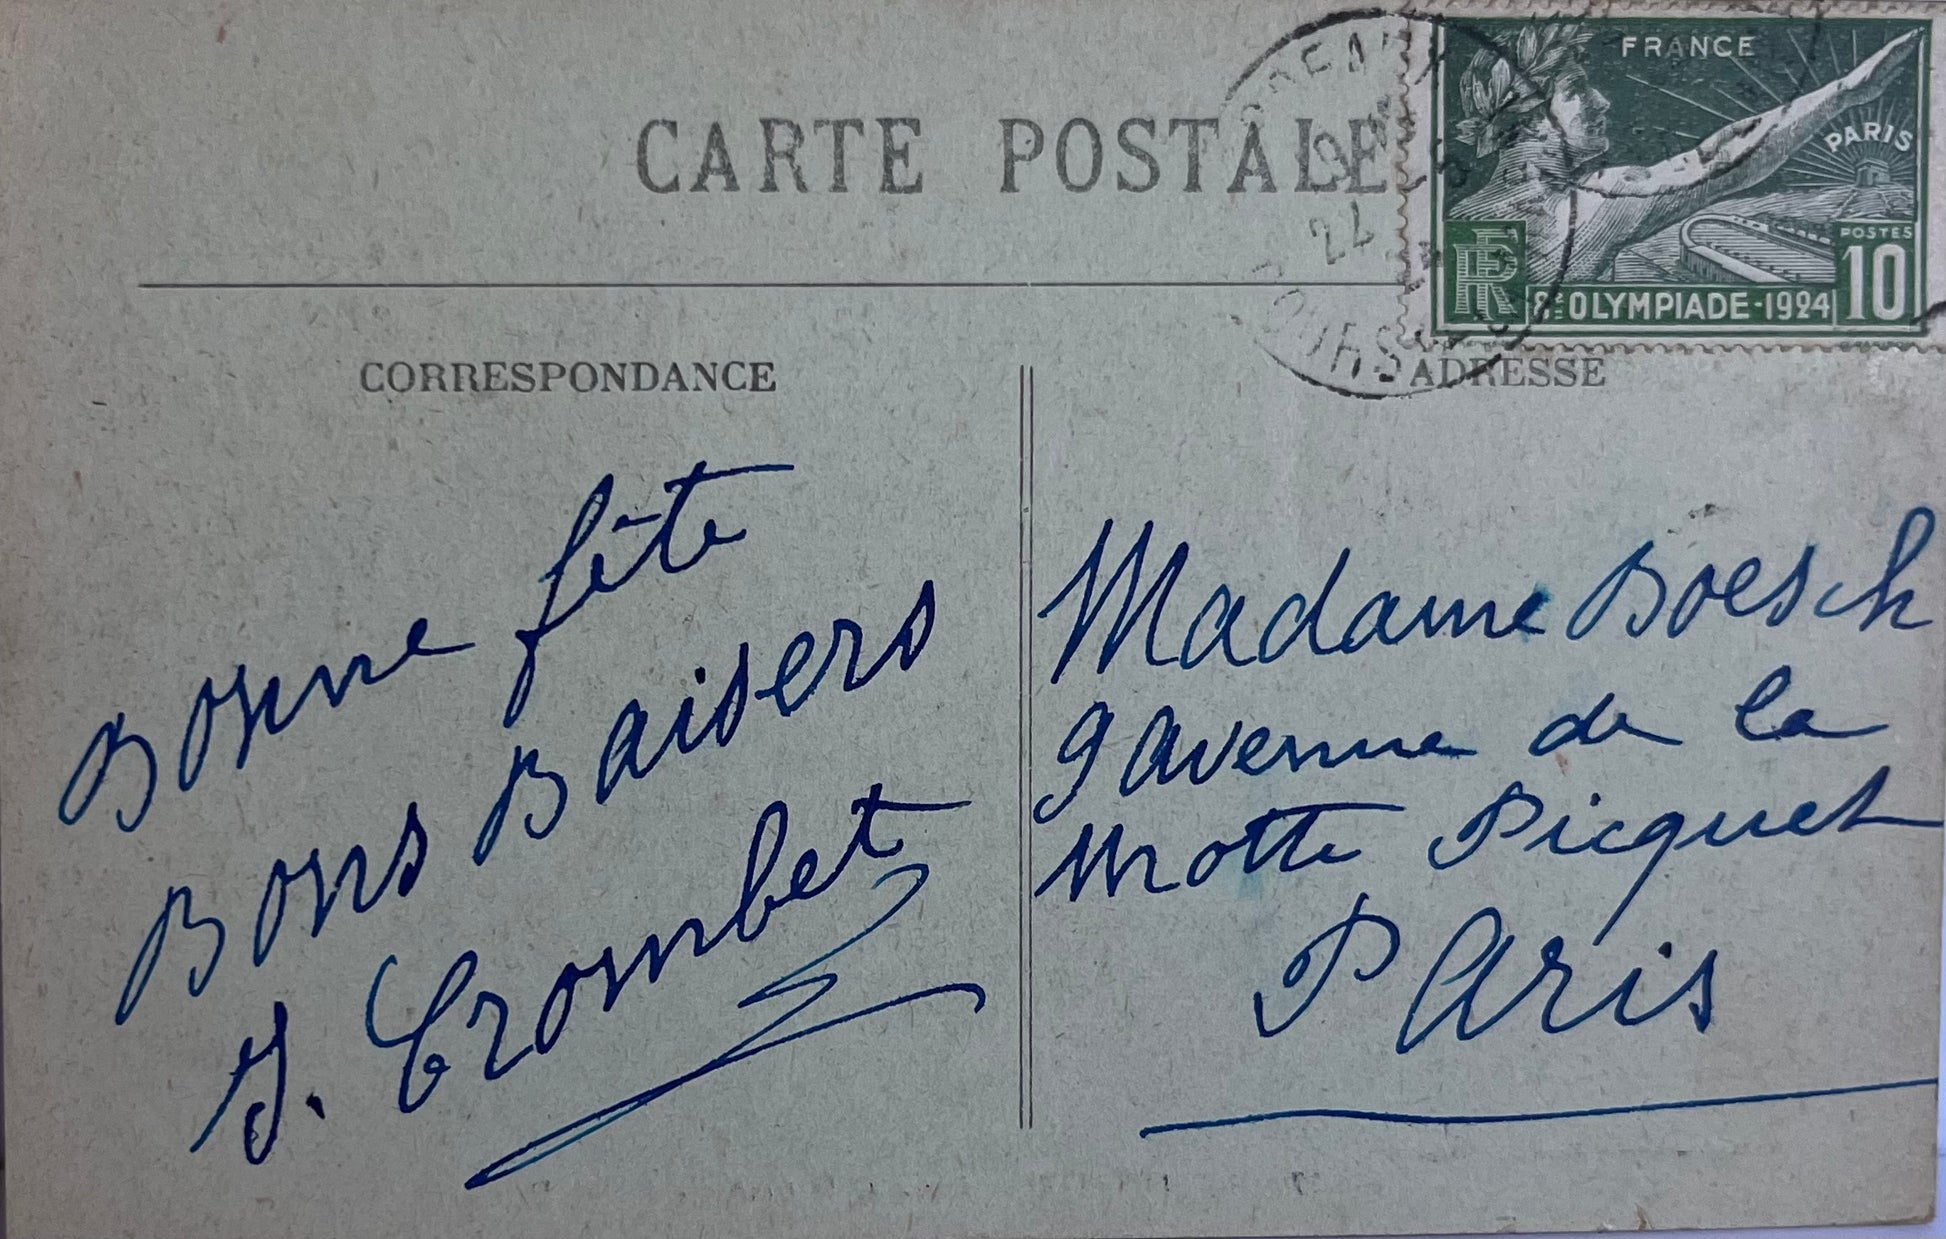 CARTE POSTALE
FRANCE
PARIS
RF
POSTES
10
8E OLYMPIADE-1924
24
CORRESPONDANCE
ADRESSE
Bonne fête
Bons Baisers
J. Crombet
Madame Boesch
9 avenue de la
Motte Picquet
Paris